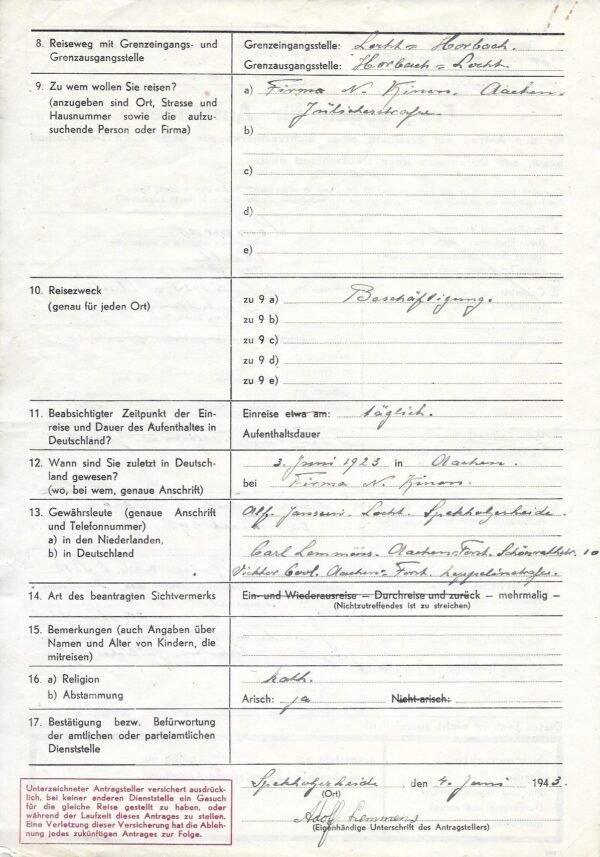 8. Reiseweg mit Grenzeingangs- und Grenzausgangsstelle
Grenzeingangsstelle: Locht = Horbach.
Grenzausgangsstelle: Horbach = Locht.
9. Zu wem wollen Sie reisen?
(anzugeben sind Ort, Strasse und
Hausnummer sowie die aufzu-
suchende Person oder Firma)
a) Firma N. Kinon. Aachen.
Jülicherstrafse.
b)
c)
d)
e)
10. Reisezweck
(genau für jeden Ort)
zu 9 a) Beschäftigung.
zu 9 b)
zu 9 c)
zu 9 d)
zu 9 e)
11. Beabsichtigter Zeitpunkt der Ein-
reise und Dauer des Aufenthaltes in
Deutschland?
Einreise etwa am: täglich.
Aufenthaltsdauer
12. Wann sind Sie zuletzt in Deutsch-
land gewesen?
(wo, bei wem, genaue Anschrift)
3. Juni 1923 in Aachen.
bei Firma N. Kinon.
13. Gewährsleute (genaue Anschrift
und Telefonnummer)
a) in den Niederlanden,
b) in Deutschland
Alf. Janssen. Locht. Spekholzerheide.
Carl Lemmens. Aachen=Forst. Schönrathstr. 10
Vicktor Aachen=Forst.
14. Art des beantragten Sichtvermerks
Ein- und Wiederausreise – Durchreise und zurück – mehrmalig –
(Nichtzutreffendes ist zu streichen)
15. Bemerkungen (auch Angaben über
Namen und Alter von Kindern, die
mitreisen)
16. a) Religion
b) Abstammung
kath.
Arisch: ja Nicht-arisch:
17. Bestätigung bezw. Befürwortung
der amtlichen oder parteiamtlichen
Dienststelle
Unterzeichneter Antragsteller versichert ausdrück-
lich, bei keiner anderen Dienststelle ein Gesuch
für die gleiche Reise gestellt zu haben, oder
während der Laufzeit dieses Antrages zu stellen.
Eine Verletzung dieser Versicherung hat die Ableh-
nung jedes zukünftigen Antrages zur Folge.
Spekholzerheide, den 4. Juni 1943.
(Ort)
Adolf Lemmens
(Eigenhändige Unterschrift des Antragstellers)